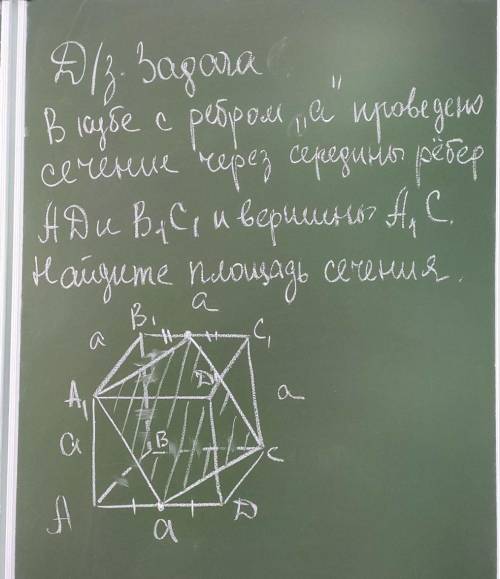 Д/з. Задача
В кубе с ребром „а" проведено
сечение через середины рёбер
АД и В₁С₁ и вершины А₁ С.
Найдите площадь сечения.
а
В₁
С₁
а
А₁
D₁
а
а
В
С
А
а
D